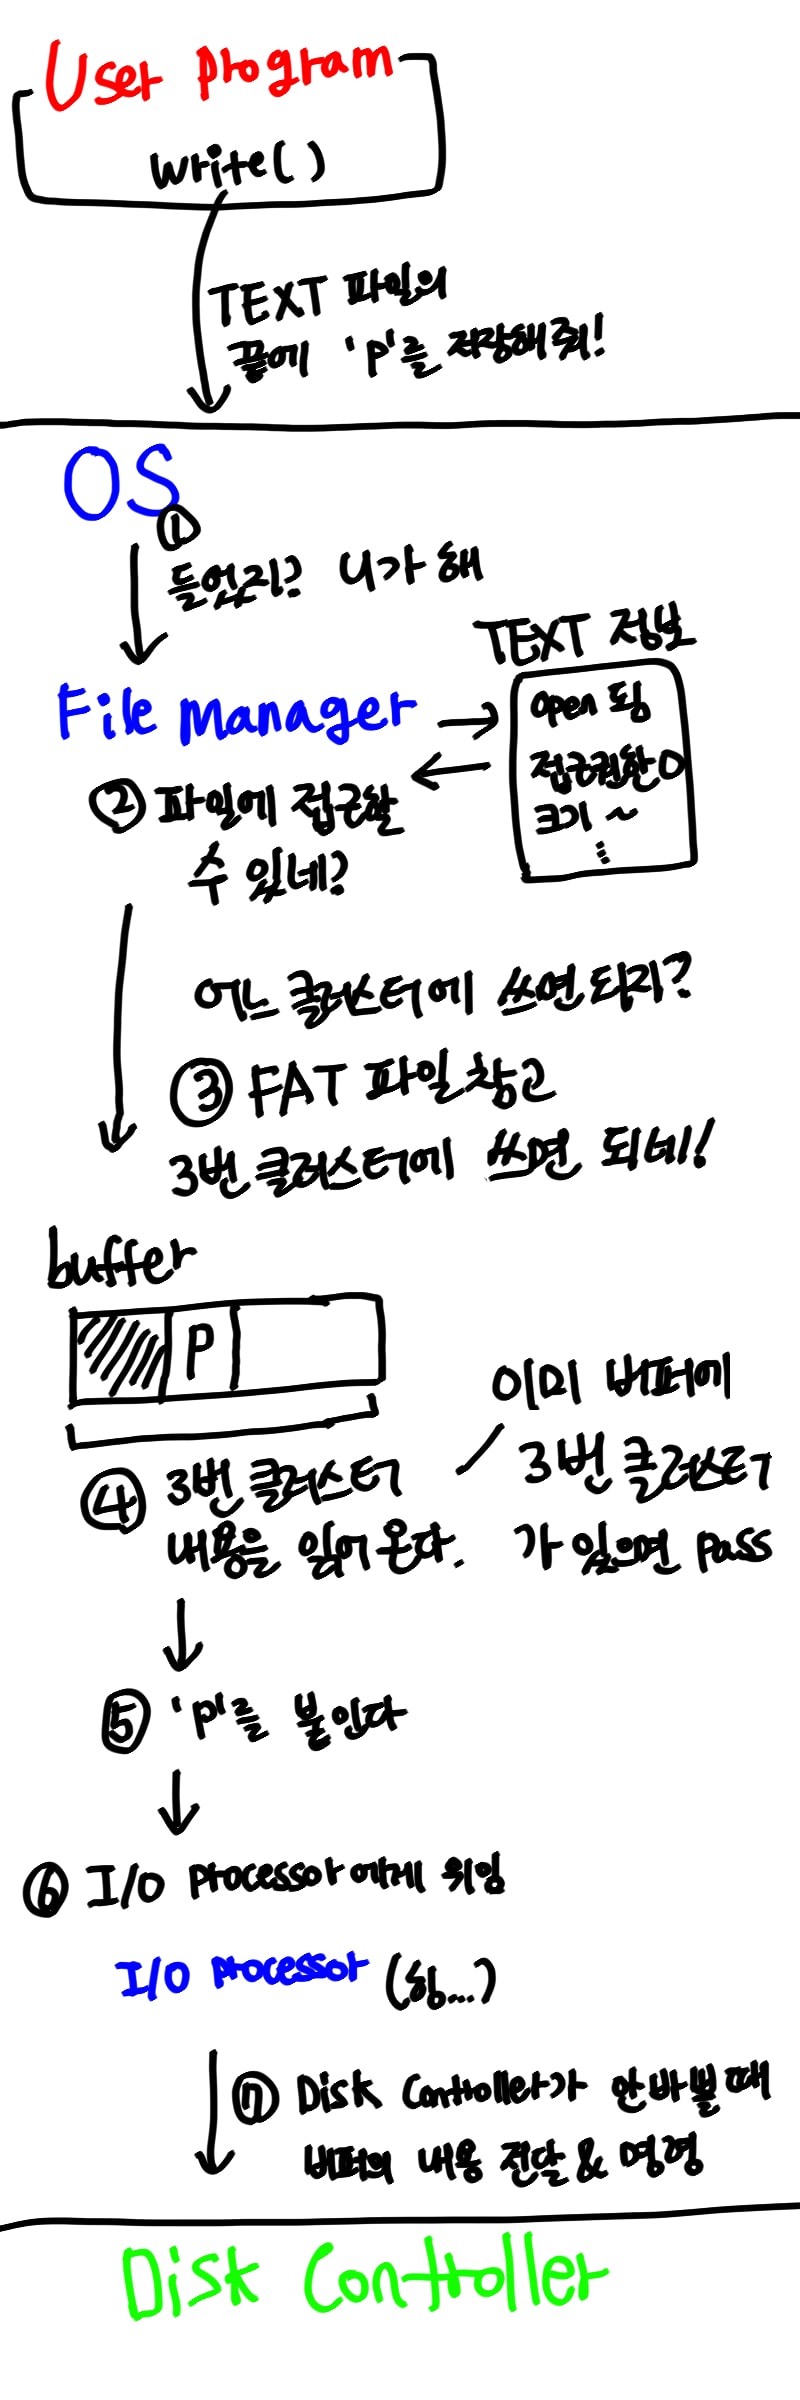 User Program
write()
TEXT 파일의
끝에 'P'를 저장해줘!
OS
①
들었지? 니가 해
TEXT 정보
File manager
open 됨
접근권한 O
크기 ~
⋮
② 파일에 접근할
수 있네?
어느 클러스터에 쓰면 되지?
③ FAT 파일 참고
3번 클러스터에 쓰면 되네!
buffer
P
④ 3번 클러스터
내용을 읽어 온다.
이미 버퍼에
3번 클러스터
가 있으면 pass
⑤ 'P'를 붙인다
⑥ I/O Processor에게 위임
I/O Processor (힝...)
⑦ Disk Controller가 안바쁠 때
버퍼의 내용 전달 & 명령
Disk Controller